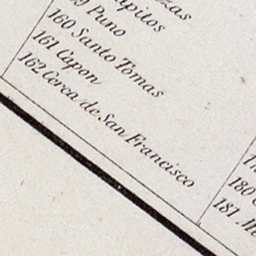 Puno
160 Santo Tomas
161 Capon
162 Cerca de San Francisco
180
181